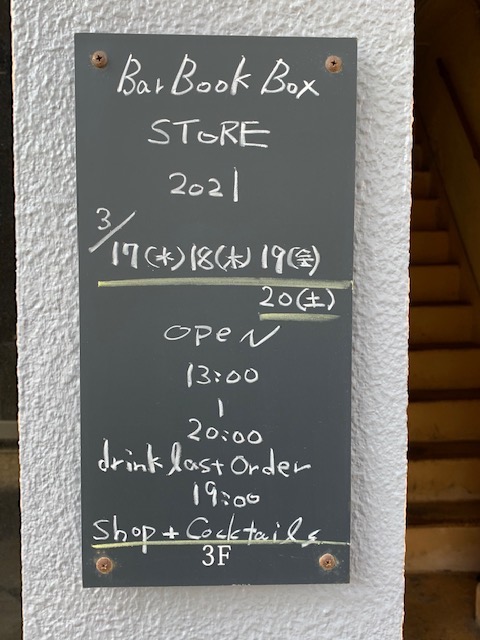 Bar Book Box
STORE
2021
3/
17(水) 18(木) 19(金)
20(土)
OPEN
13:00
|
20:00
drink last Order
19:00
Shop + Cocktails
3F